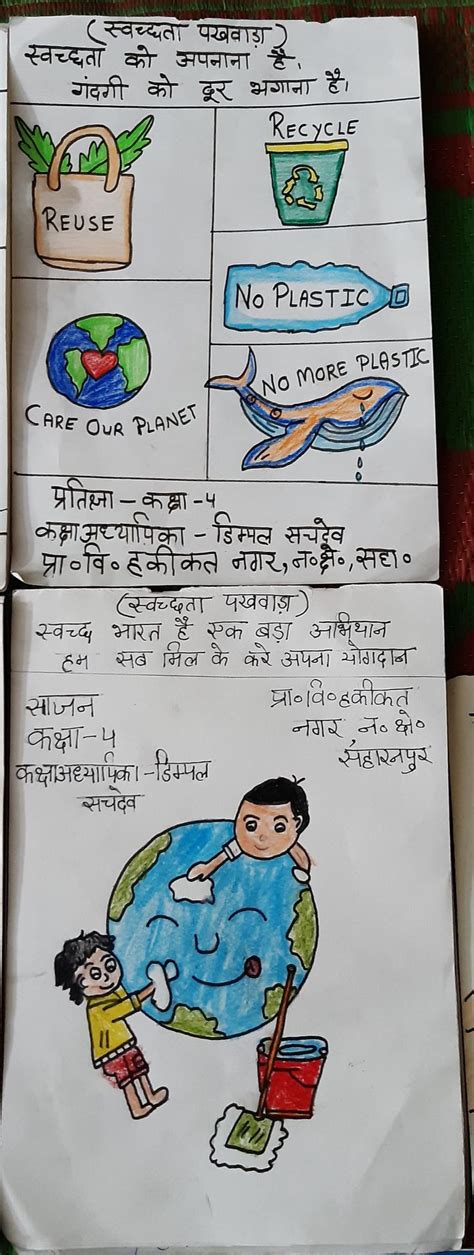 (स्वच्छता पखवाड़ा)
स्वच्छता को अपनाना है,
गंदगी को दूर भगाना है।
REUSE
RECYCLE
NO PLASTIC
CARE OUR PLANET
NO MORE PLASTIC
प्रतिक्षा - कक्षा - ५
कक्षाअध्यापिका - डिम्पल सचदेव
प्रा०वि० हकीकत नगर, न०क्षे०, सहा०
(स्वच्छता पखवाड़ा)
स्वच्छ भारत है एक बड़ा अभियान
हम सब मिल के करे अपना योगदान
साजन
कक्षा - ५
कक्षाअध्यापिका - डिम्पल
सचदेव
प्रा०वि०हकीकत
नगर न० क्षे०
सहारनपुर